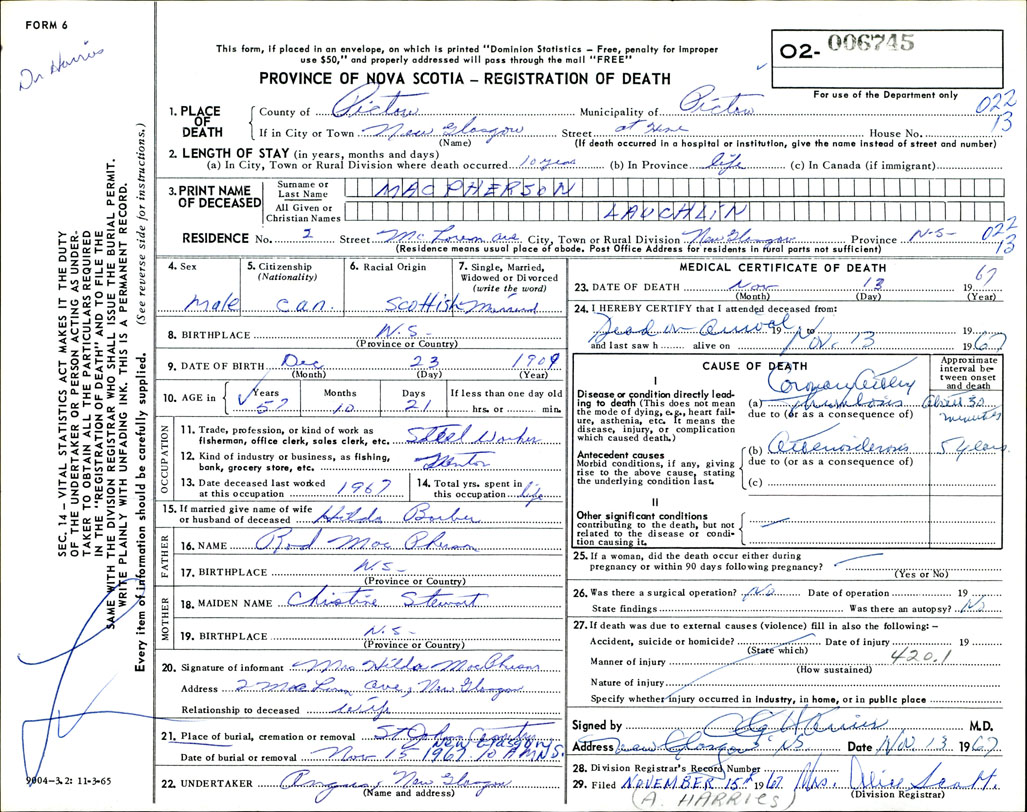 FORM 6
Dr Harries
This form, if placed in an envelope, on which is printed "Dominion Statistics – Free, penalty for improper
use $50," and properly addressed will pass through the mail "FREE"
O2- 006745
PROVINCE OF NOVA SCOTIA – REGISTRATION OF DEATH
For use of the Department only
022
13
1. PLACE OF DEATH
County of Pictou Municipality of Pictou
If in City or Town New Glasgow Street at Home House No.
(Name) (If death occurred in a hospital or institution, give the name instead of street and number)
2. LENGTH OF STAY (in years, months and days)
(a) In City, Town or Rural Division where death occurred 10 years (b) In Province life (c) In Canada (if immigrant)
3. PRINT NAME OF DECEASED
Surname or Last Name MACPHERSON
All Given or Christian Names LAUCHLIN
RESIDENCE No. 2 Street Ave City, Town or Rural Division New Glasgow Province N.S-
022
13
(Residence means usual place of abode. Post Office Address for residents in rural parts not sufficient)
4. Sex
male
5. Citizenship (Nationality)
can.
6. Racial Origin
Scottish
7. Single, Married, Widowed or Divorced (write the word)
Married
8. BIRTHPLACE N.S-
(Province or Country)
9. DATE OF BIRTH Dec 23 1909
(Month) (Day) (Year)
10. AGE in
Years 57
Months 10
Days 21
If less than one day old
hrs. or min.
OCCUPATION
11. Trade, profession, or kind of work as fisherman, office clerk, sales clerk, etc. Steel Worker
12. Kind of industry or business, as fishing, bank, grocery store, etc.
13. Date deceased last worked at this occupation 1967
14. Total yrs. spent in this occupation life
15. If married give name of wife or husband of deceased Hilda Barber
FATHER
16. NAME Rod MacPherson
17. BIRTHPLACE N.S-
(Province or Country)
MOTHER
18. MAIDEN NAME Christine Stewart
19. BIRTHPLACE N.S-
(Province or Country)
20. Signature of informant Mrs Hilda MacPherson
Address 2 Ave, New Glasgow
Relationship to deceased wife
21. Place of burial, cremation or removal St John
New Glasgow
Date of burial or removal Nov 15 1967 N.S.
22. UNDERTAKER Angus, New Glasgow
(Name and address)
MEDICAL CERTIFICATE OF DEATH
23. DATE OF DEATH Nov 13 1967
(Month) (Day) (Year)
24. I HEREBY CERTIFY that I attended deceased from:
Dead on arrival 19 to 19
and last saw h alive on Nov. 13 1967
CAUSE OF DEATH
Approximate interval between onset and death
I
Disease or condition directly leading to death (This does not mean the mode of dying, e.g., heart failure, asthenia, etc. It means the disease, injury, or complication which caused death.)
(a) Coronary Artery Thrombosis About 30 minutes
due to (or as a consequence of)
Antecedent causes
Morbid conditions, if any, giving rise to the above cause, stating the underlying condition last.
(b) 5 years
due to (or as a consequence of)
(c)
II
Other significant conditions contributing to the death, but not related to the disease or condition causing it.
25. If a woman, did the death occur either during pregnancy or within 90 days following pregnancy?
(Yes or No)
26. Was there a surgical operation? No Date of operation 19
State findings Was there an autopsy? No
27. If death was due to external causes (violence) fill in also the following: –
Accident, suicide or homicide? Date of injury 19
(State which)
420.1
Manner of injury
(How sustained)
Nature of injury
Specify whether injury occurred in industry, in home, or in public place
Signed by A G Harries M.D.
Address New Glasgow NS Date Nov. 13 1967
28. Division Registrar's Record Number
29. Filed NOVEMBER 15th 1967 Mrs. Alice
(Division Registrar)
(A. HARRIES)
SEC. 14 – VITAL STATISTICS ACT MAKES IT THE DUTY
OF THE UNDERTAKER OR PERSON ACTING AS UNDER-
TAKER TO OBTAIN ALL THE PARTICULARS REQUIRED
IN THE "REGISTRATION OF DEATH" AND TO FILE THE
SAME WITH THE DIVISION REGISTRAR WHO SHALL ISSUE THE BURIAL PERMIT.
WRITE PLAINLY WITH UNFADING INK. THIS IS A PERMANENT RECORD.
Every item of information should be carefully supplied. (See reverse side for instructions.)
9004-3.2: 11-3-65